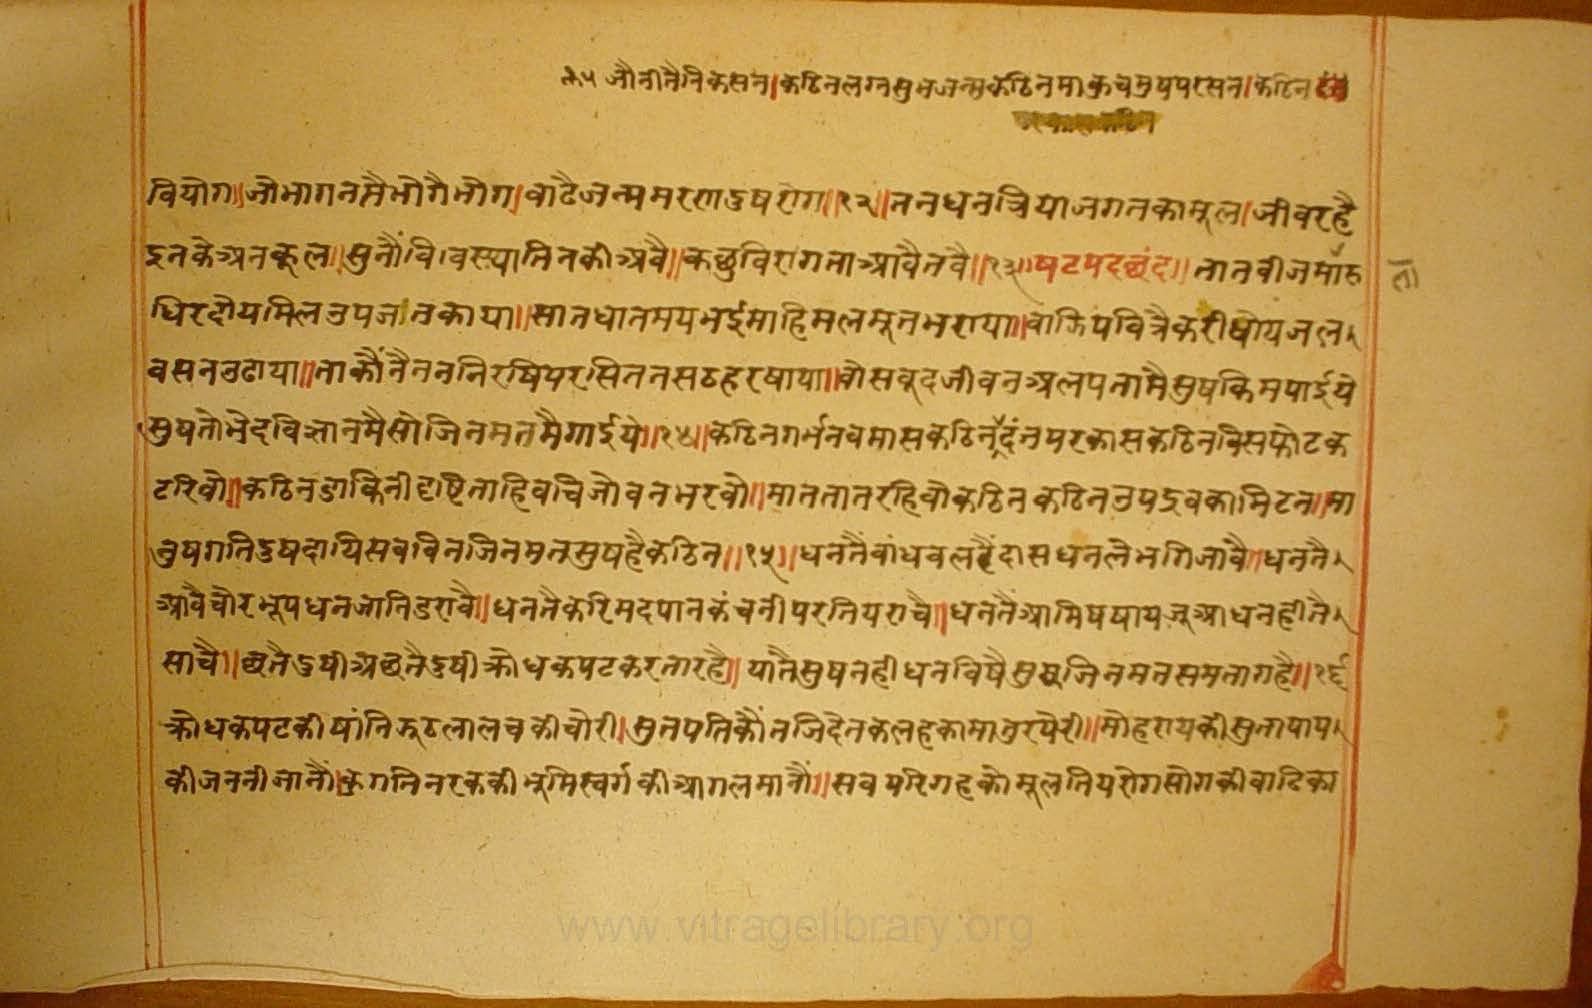 १५ जौनीनैनिकसन।कठिनलगनसुभजन्मकठिनमाकुचनुषपरसन।कठिन
वियोग॥जोभागनमैभोगैभोग।वाढैजन्ममरणदुषरोग॥१२॥तनधनत्रियाजगतकामूल।जीवरहै
इनकेअनकूल॥सुनौंविवस्थातिनकीअवै॥कछुविरागताआवैतवै॥१३॥षटपदछंद॥तातवीजमारु
ता
धिरदोयमिलउपजातकाया॥सातधातमयभईमाहिमलमूतभराया॥वाकिंपवित्रैकरीधोयजल
वसनउढाया॥ताकौंनैननिरषिपरसितनसठहरषाया॥वोसवूदजीवनअलपतामैसुषकिमपाईये
सुषतोभेदविज्ञानमैसोजिनमतमैगाईये॥१४॥कठिनगर्भनवमासकठिनदंतपरकासकठिनविसफोटक
टरिवो॥कठिनडाकिनीदृष्टिताहिवचिजोवनभरवो॥माततातरहिवोकठिनकठिनउपद्रवकामिटन॥मा
नुषगतिदुषदायिसवविनजिनमतसुषहैकठिन॥१५॥धनतैंवांधवलरैंदासधनलेभगिजावै॥धनतै
आवैचोरभूपधनजानिडरावै॥धनतैकरिमदपानकंचनीपरतियराचै॥धनतैंआमिषषायजूआधनहीतै
साचै॥छतैदुषीअछतैदुषीक्रोधकपटकरतारहै॥यातैसुषनहीधनविषैसुषजिनमतसमतागहै॥१६
क्रोधकपटकीषांनिझूठलालचकीचोरी।सुतपतिकौंतजिदेतकलहकामातुरघेरी॥मोहरायकीसुतापाप
कीजननीजानौं।कुगतिनरककीभूमिस्वर्गकीआगलमानौं॥सवपरिगहकोमूलतियरोगसोगकीवादिका
www.vitragelibrary.org